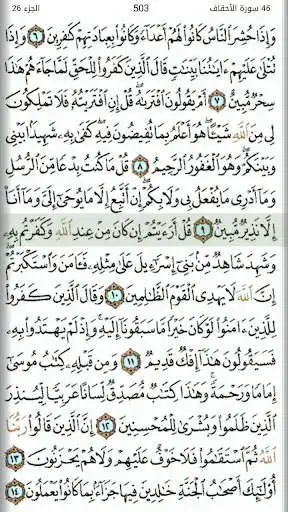 46 سورة الأحقاف 503 الجزء 26
وَإِذَا حُشِرَ النَّاسُ كَانُوا۟ لَهُمْ أَعْدَآءً وَكَانُوا۟ بِعِبَادَتِهِمْ كَـٰفِرِينَ ٦ وَإِذَا
تُتْلَىٰ عَلَيْهِمْ ءَايَـٰتُنَا بَيِّنَـٰتٍ قَالَ الَّذِينَ كَفَرُوا۟ لِلْحَقِّ لَمَّا جَآءَهُمْ هَـٰذَا
سِحْرٌ مُّبِينٌ ٧ أَمْ يَقُولُونَ افْتَرَىٰهُ ۖ قُلْ إِنِ افْتَرَيْتُهُۥ فَلَا تَمْلِكُونَ
لِى مِنَ اللَّهِ شَيْـًٔا ۖ هُوَ أَعْلَمُ بِمَا تُفِيضُونَ فِيهِ ۖ كَفَىٰ بِهِۦ شَهِيدًۢا بَيْنِى
وَبَيْنَكُمْ ۖ وَهُوَ الْغَفُورُ الرَّحِيمُ ٨ قُلْ مَا كُنتُ بِدْعًا مِّنَ الرُّسُلِ
وَمَآ أَدْرِى مَا يُفْعَلُ بِى وَلَا بِكُمْ ۖ إِنْ أَتَّبِعُ إِلَّا مَا يُوحَىٰٓ إِلَىَّ وَمَآ أَنَا۠
إِلَّا نَذِيرٌ مُّبِينٌ ٩ قُلْ أَرَءَيْتُمْ إِن كَانَ مِنْ عِندِ اللَّهِ وَكَفَرْتُم بِهِۦ
وَشَهِدَ شَاهِدٌ مِّنۢ بَنِىٓ إِسْرَٰٓءِيلَ عَلَىٰ مِثْلِهِۦ فَـَٔامَنَ وَاسْتَكْبَرْتُمْ ۖ
إِنَّ اللَّهَ لَا يَهْدِى الْقَوْمَ الظَّـٰلِمِينَ ١٠ وَقَالَ الَّذِينَ كَفَرُوا۟
لِلَّذِينَ ءَامَنُوا۟ لَوْ كَانَ خَيْرًا مَّا سَبَقُونَآ إِلَيْهِ ۚ وَإِذْ لَمْ يَهْتَدُوا۟ بِهِۦ
فَسَيَقُولُونَ هَـٰذَآ إِفْكٌ قَدِيمٌ ١١ وَمِن قَبْلِهِۦ كِتَـٰبُ مُوسَىٰٓ
إِمَامًا وَرَحْمَةً ۚ وَهَـٰذَا كِتَـٰبٌ مُّصَدِّقٌ لِّسَانًا عَرَبِيًّا لِّيُنذِرَ
الَّذِينَ ظَلَمُوا۟ وَبُشْرَىٰ لِلْمُحْسِنِينَ ١٢ إِنَّ الَّذِينَ قَالُوا۟ رَبُّنَا
اللَّهُ ثُمَّ اسْتَقَـٰمُوا۟ فَلَا خَوْفٌ عَلَيْهِمْ وَلَا هُمْ يَحْزَنُونَ ١٣
أُو۟لَـٰٓئِكَ أَصْحَـٰبُ الْجَنَّةِ خَـٰلِدِينَ فِيهَا جَزَآءًۢ بِمَا كَانُوا۟ يَعْمَلُونَ ١٤